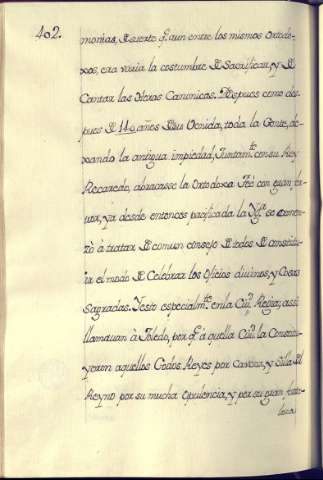 402.
monias, de suerte q.e aun entre los mismos Ortodo-
xos, era varia la costumbre de Sacrificar, y de
Cantar las Horas Canonicas. Despues como des-
pues de 140 años de su Venida, toda la Gente, de-
xando la antigua impiedad, Juntam.te con su Rey
Recaredo, abrazasse la Ortodoxa Feé con gran fer-
vor, ya desde entonces pacificada la Yg.a se comen-
zò à tratar de comun consejo de todos de constitu-
ir el modo de Celebrar los Oficios divinos, y Cosas
Sagradas. Yesto especialm.te en la Ciu.d Regia; assi
llamauan à Toledo, por q.e à quella Ciu.d la Constitu-
yeron aquellos Godos Reyes por Caveza, y Silla del
Reyno por su mucha Opulencia, y por su gran forta-
leza